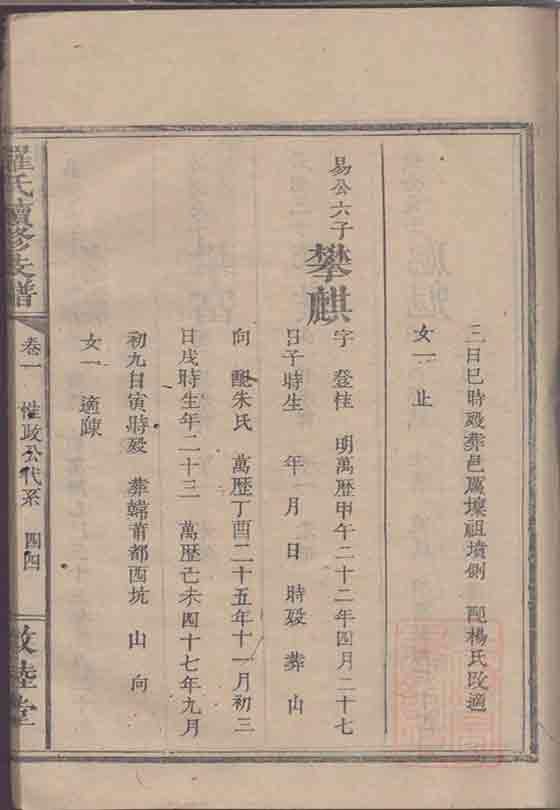 三日巳時殁葬邑厲壇祖墳側 配楊氏改適
女一 止
易公六子 攀麒
字 登桂 明萬歷甲午二十二年四月二十七
日子時生 年 月 日 時殁 葬 山
向 配朱氏 萬歷丁酉二十五年十一月初三
日戌時生年二十三 萬歷己未四十七年九月
初九日寅時殁 葬韓莆都西坑 山 向
女一 適陳
羅氏續修支譜 卷一 惟政公代系 四四 敦睦堂